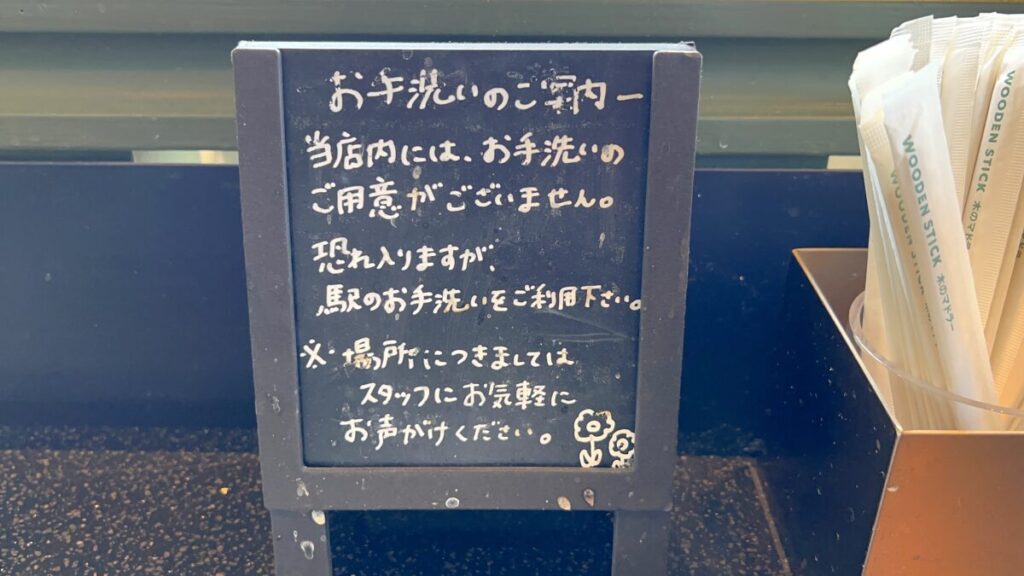 お手洗いのご案内ー
当店内には、お手洗いの
ご用意がございません。
恐れ入りますが、
駅のお手洗いをご利用下さい。
※場所につきましては
スタッフにお気軽に
お声がけください。
WOODEN STICK 木のマドラー
WOODEN STICK 木のマドラー
WOODEN STICK